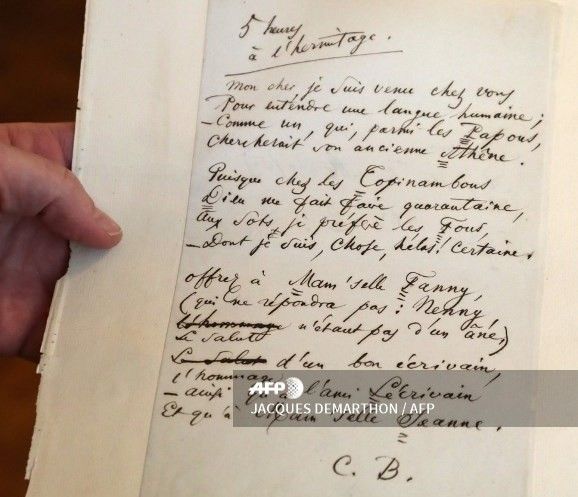 5 heures
à l'hermitage.
Mon cher, je suis venu chez vous
Pour entendre une langue humaine ;
– Comme un, qui, parmi les Papous,
Chercherait son ancienne Athène.
Puisque chez les Topinambous
Dieu me fait faire quarantaine,
Aux sots je préfère les Fous,
– Dont je suis, chose, hélas ! certaine.
offrez à Mam'selle Fanny,
(qui ne répondra pas : Nenny
l'hommage n'étant pas d'un âne,)
Le Salut
Le Salut d'un bon écrivain,
l'hommage
– ainsi l'ami Lécrivain
Et qu'à Mam'selle Jeanne.
C. B.
AFP
JACQUES DEMARTHON / AFP